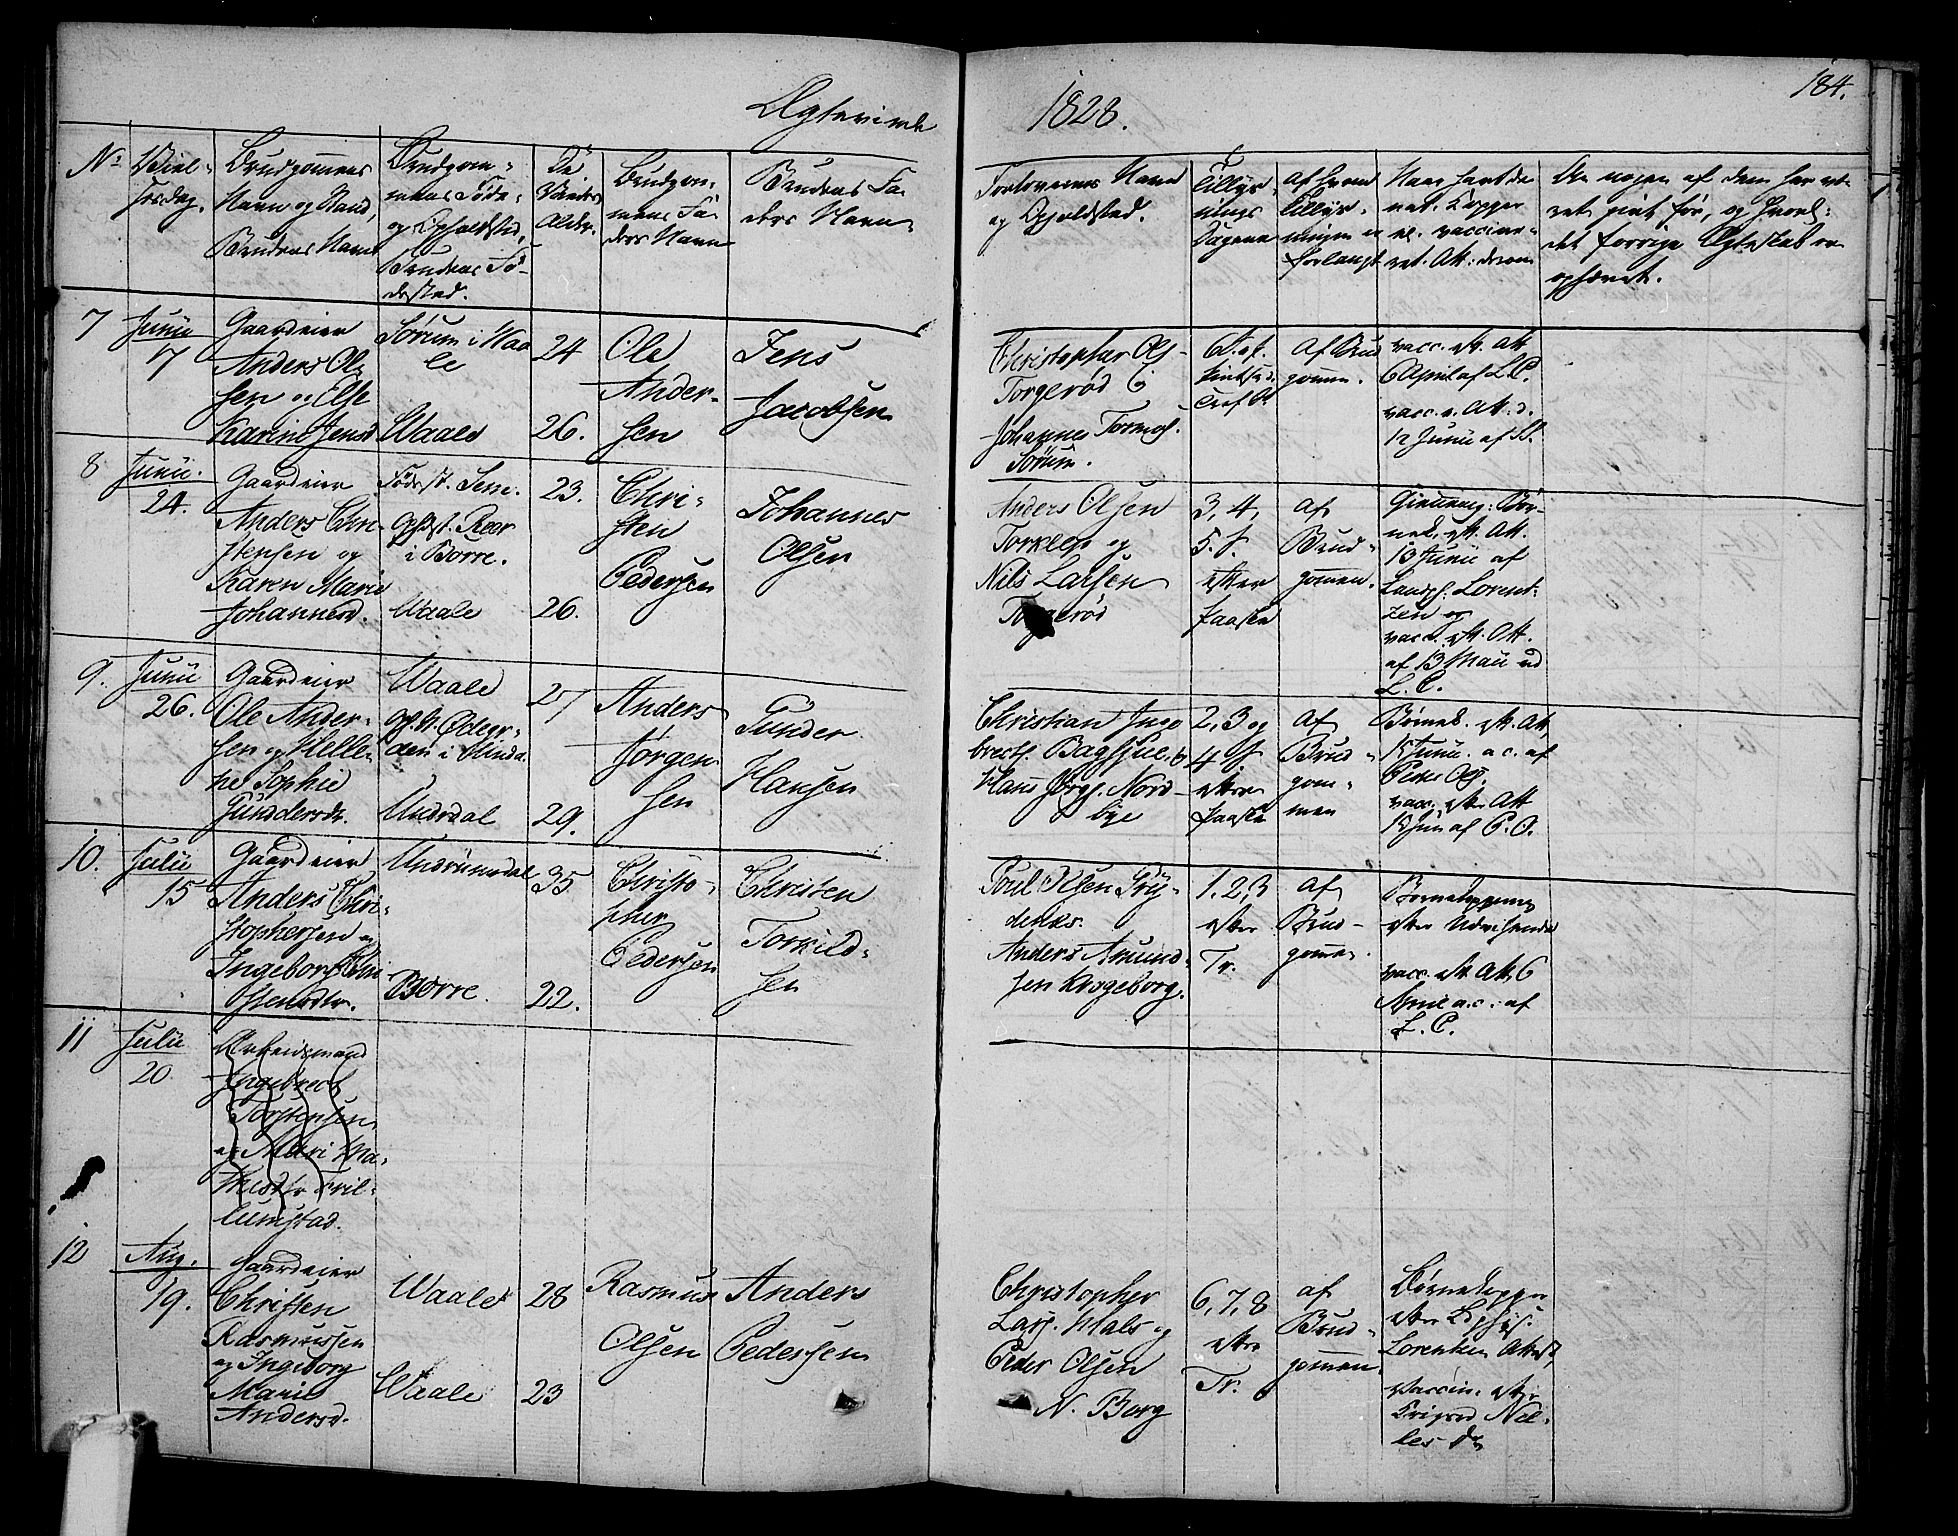 Ægteviede
1828.
184.
No
Viel-
sesdag.
Brudgommens
Navn og Stand,
Brudens Navn
Brudgom-
mens Føde-
og Opholdsted,
Brudens Fø-
dested.
De
Viedes
Alder.
Brudgom-
mens Fa-
ders Navn
Brudens Fa-
ders Navn
Forlovernes Navn
og Opholdsted.
Tillys-
nings
Dagene
af hvem
tillys-
ningen er
forlangt
Naar havt de
nat. Kopper
el. vaccine-
ret. Att: derom
Om nogen af dem har væ-
ret givt før, og hvorl:
det forrige Ægteskab er
ophævet.
7
Junii
7
Gaardeier
Anders Ol-
sen og Else
Karine Jensd
Sørum i Waa
le
Waale
24
26.
Ole
Ander-
sen
Jens
Jacobsen
Christopher Ols-
Torgerød og
Johannes Tormos.
Sørum.
Af Brud
gomm.
vacc. eft. Att
6 April af L. C.
vacc. e. Att: d.
12 Junii af
8
Junii.
24.
Gaardeier
Anders Chri-
stensen og
Karen Marie
Johannesd.
Fødest. Sem.
Ophst. Roer
i Borre.
Waale
23.
26.
Chri-
sten
Pedersen
Johannes
Olsen
Anders Olsen
Torklep og
Nils Larsen
Torgerød
3, 4,
5. S.
efter
Paaske
af
Brud-
gommen.
nek. eft. Att.
13 Junii af
Landph. Lorent-
zen og
vacc. eft. Att.
af 13 Maii ved
L. C.
9.
Junii
26.
Gaardeier
Ole Ander-
sen og Helle-
ne Sophie
Gundersdr.
Waale
Oph. st. Ødegr-
den i Undr.
Undrdal
27
29.
Anders
Jørgen
sen
Gunder
Hansen
Christian Inge
brecth. Bagsfuel og
Hans Jørgs. Nord-
bye
2, 3 og
4 S.
efter
Paaske
af
Brud-
gom-
men
Børnek. eft. Att.
Junii a. c. af
Peder Ols.
vacc. efter Att
Jun af P. O.
10.
Julii
15
Gaardeier
Anders Chri-
stophersen og
Ingeborg Chri
stensdtr.
Undrumsdal
Borre.
35
22.
Christo-
pher
Pedersen
Christen
Torkild-
sen
Poul Olsen Gry-
denks.
Anders Amund-
sen Krogeborg.
1. 2, 3
efter
Tr.
af
Brud-
gomm.
Børnekopperne
efter Udvisende
vacc. eft. Att. 6
a. c. af
L. C.
11
Julii
20.
Arbeidsmand
Ingebrect
Torstensen
og Mari Ma-
thisdtr Tril-
lumstad.
12
Aug.
19.
Gaardeier
Christen
Rasmussen
og Ingeborg
Marie
Andersd.
Waale
Waale
28
23
Rasmus
Olsen
Anders
Pedersen
Christopher
Lars. Hals og
Peder Olsen
N. Borg
6, 7, 8
efter
Tr.
af
Brud-
gommen.
Børnekopper
efter
Lorentzen Attest
Vaccin. efter